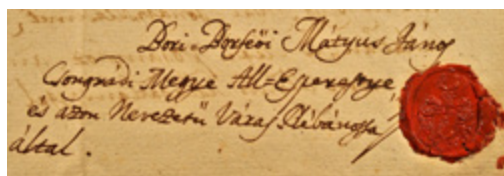 Dori-Dorseöi Mátyus János
Csongrádi Megye All-Esperestye
és azon Nevezetü Város Plébánossa
által.